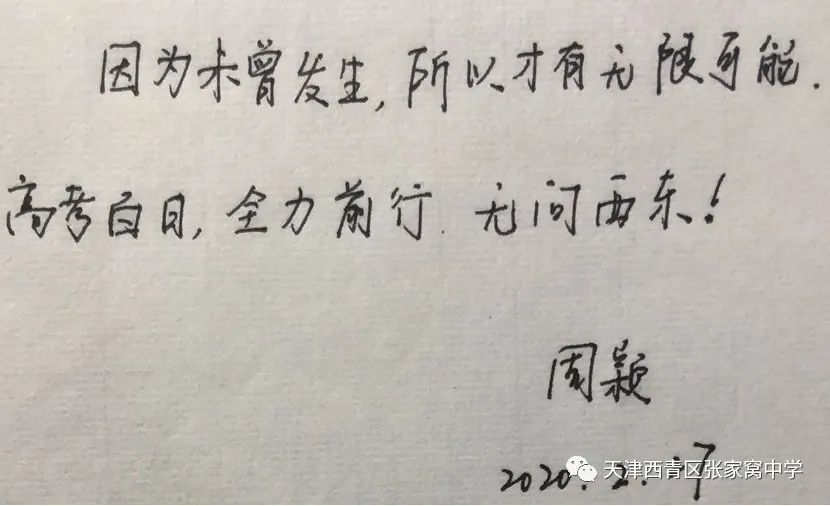 因为未曾发生,所以才有无限可能.
高考百日,全力前行.无问西东!
周颖
2020.2.17
天津西青区张家窝中学